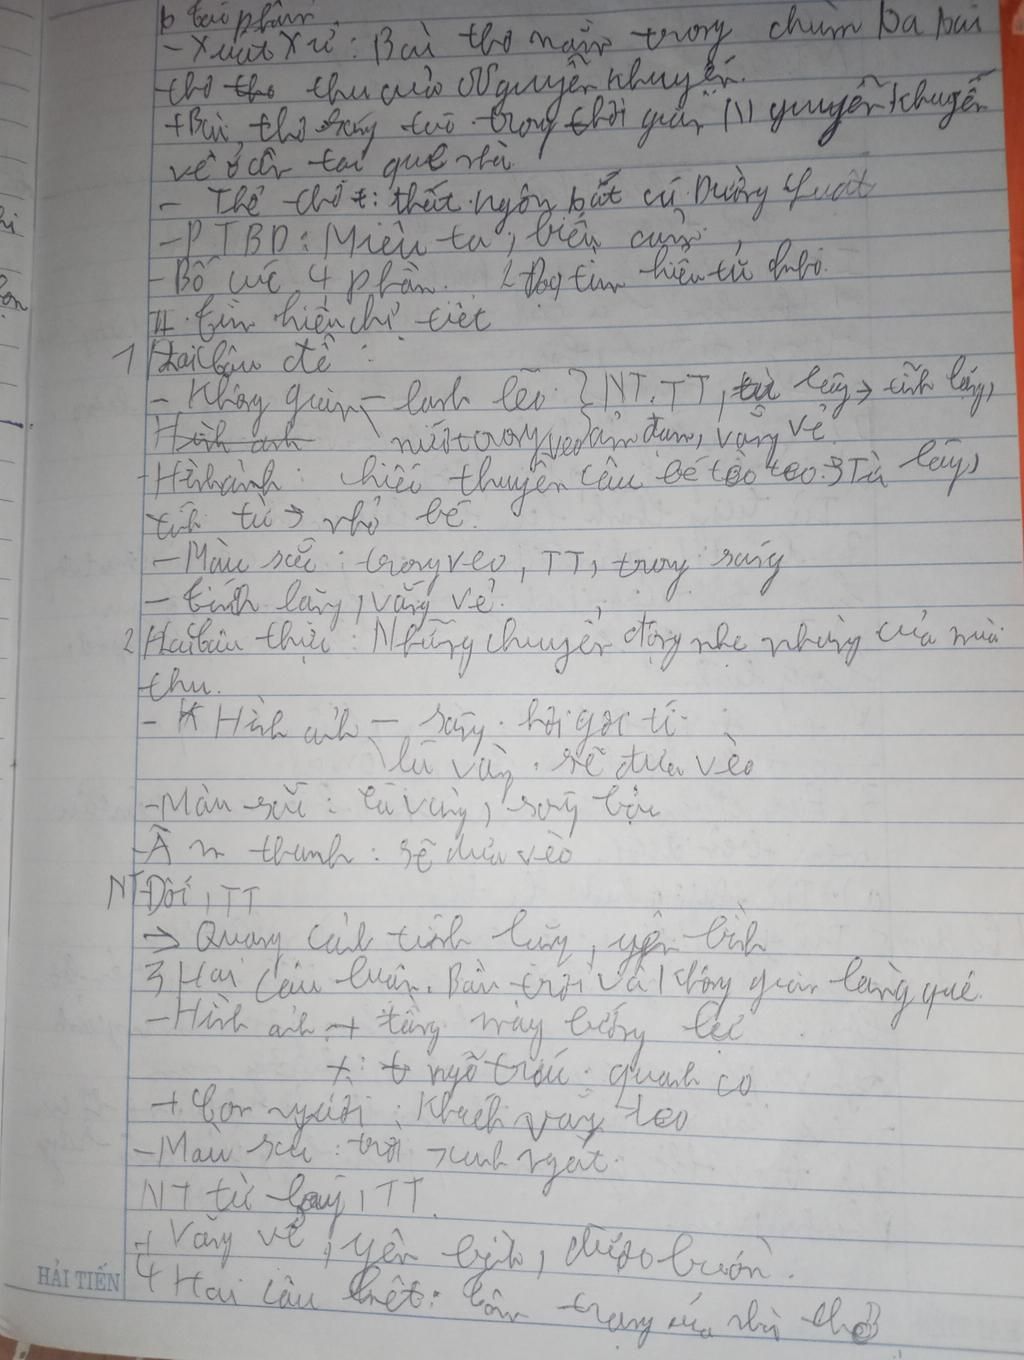 b tác phẩm
- Xuất xứ: Bài thơ nằm trong chùm ba bài
thơ thu của Nguyễn Khuyến.
+ Bài thơ sáng tác trong thời gian Nguyễn Khuyến
về ở ẩn tại quê nhà
- Thể thơ: thất ngôn bát cú Đường luật
- PTBĐ: Miêu tả, biểu cảm
- Bố cục 4 phần. 2 Đọc tìm hiểu từ khó.
II. tìm hiểu chi tiết
1 Hai câu đề:
- Không gian - lạnh lẽo } NT. TT, từ láy → tĩnh lặng,
nước trong veo ảm đạm, vắng vẻ.
- Hình ảnh: chiếc thuyền câu bé tẻo teo. } Từ láy,
tính từ → nhỏ bé.
- Màu sắc: trong veo, TT, trong sáng
- tĩnh lặng, vắng vẻ.
2 Hai câu thực: Những chuyển động nhẹ nhàng của mùa
thu.
- Hình ảnh - sóng. hơi gợi tí
lá vàng. sẽ đưa vèo
- Màu sắc: lá vàng, sóng biếc
- Âm thanh: sẽ đưa vèo
NT Đối, TT
→ Quang cảnh tĩnh lặng, yên bình
3 Hai câu luận. Bầu trời và không gian làng quê.
- Hình ảnh + tầng mây lửng lơ
+: ngõ trúc: quanh co
+ Con người: Khách vắng teo
- Màu sắc: trời xanh ngát.
NT từ láy, TT.
+ Vắng vẻ, yên bình, đượm buồn.
4 Hai câu kết: tâm trạng của nhà thơ
HẢI TIẾN